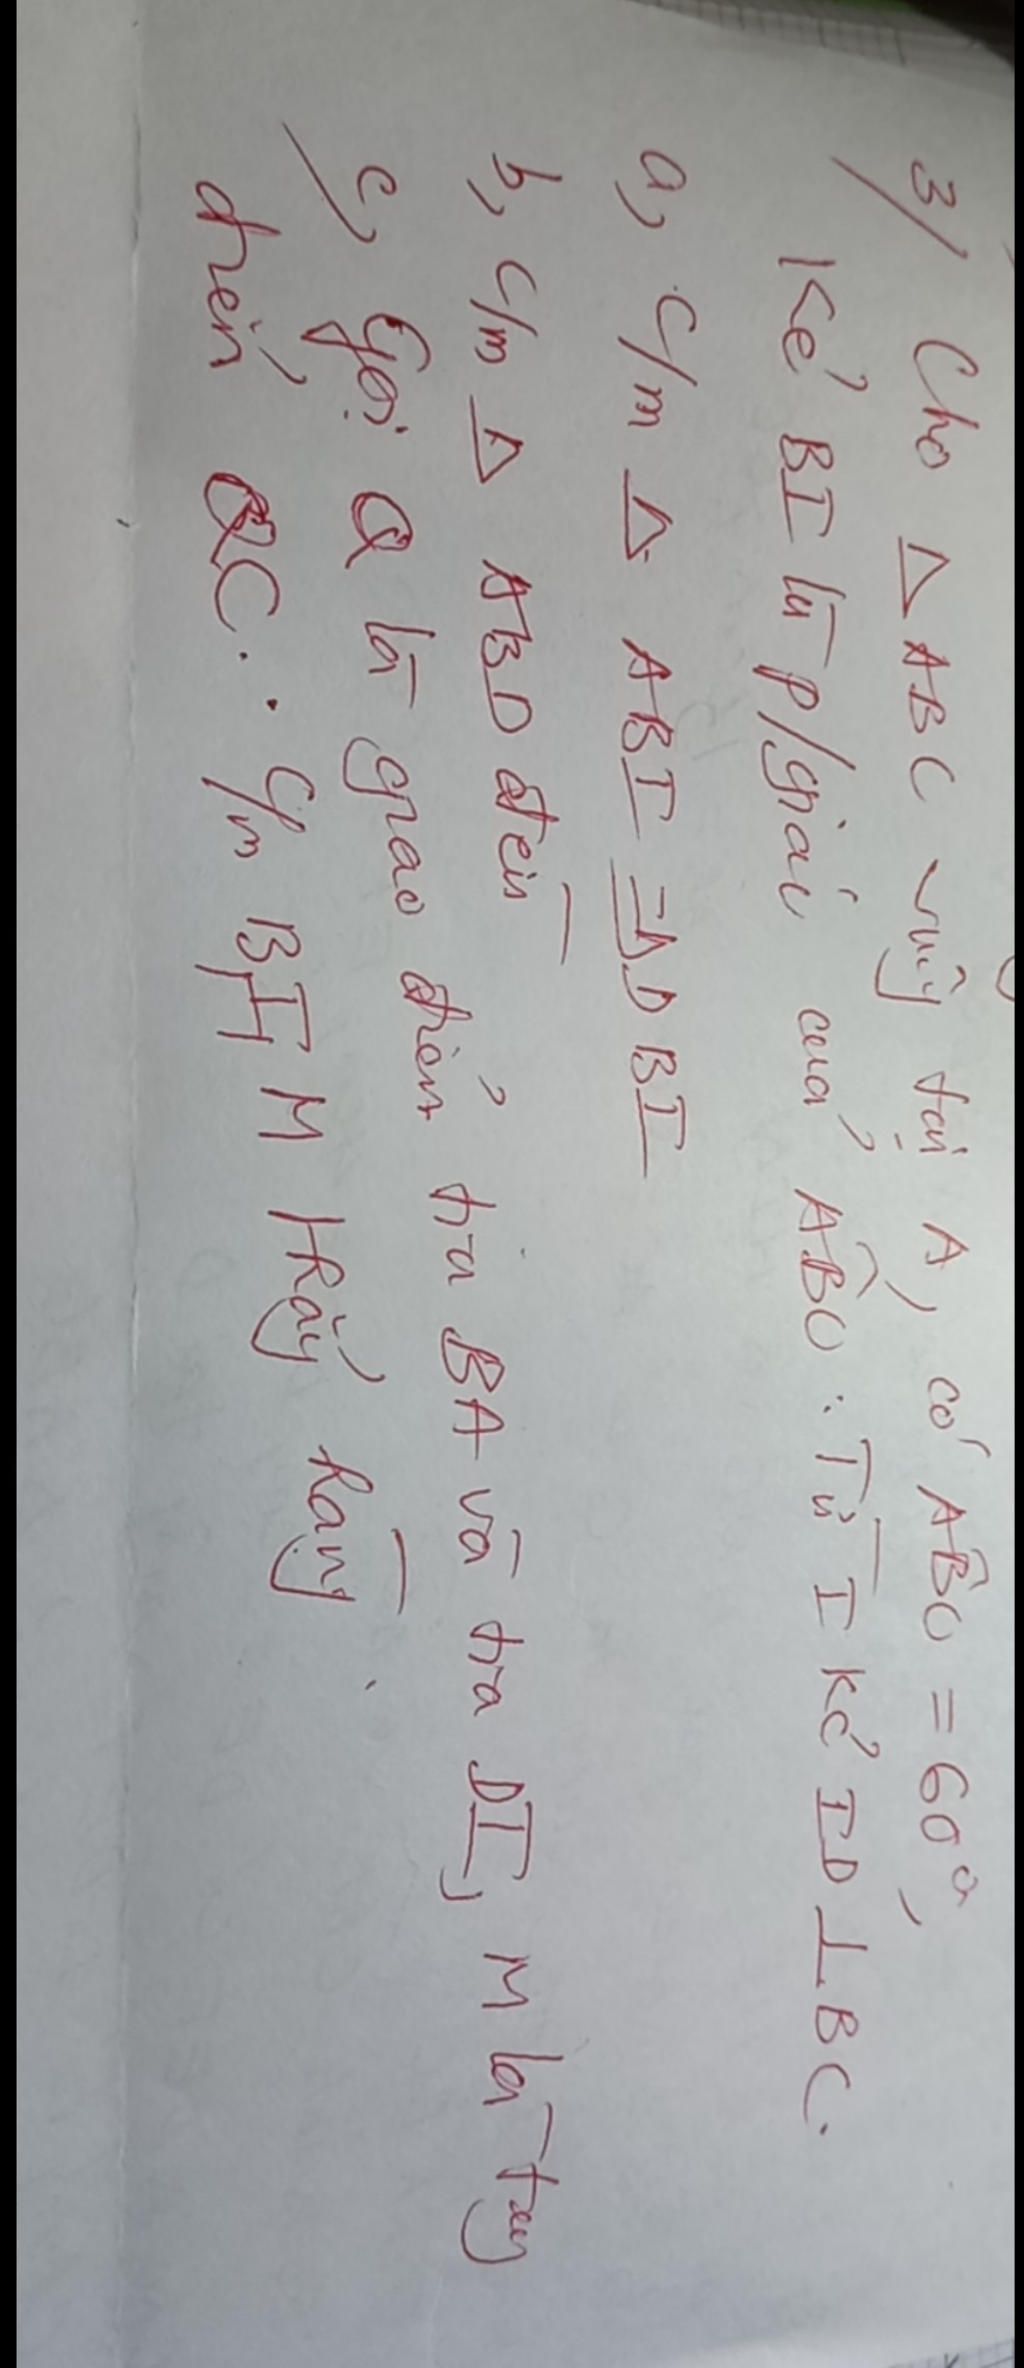 3/ Cho △ ABC vuôg tại A, có ABC = 60°,
Kẻ BI là p/giác của ABC. Từ I kẻ ID ⊥ BC.
a, C/m △ ABI = △DBI
b, C/m △ ABD đều
c, Gọi Q là giao điểm tia BA và tia DI, M là tug
điểm QC. C/m B, I, M thẳg hàng.